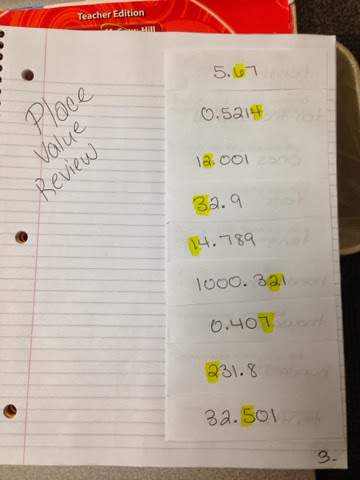 Teacher Edition
McGraw-Hill
Place
Value
Review
5.67
0.5214
12.001
32.9
14.789
1000.321
0.407
231.8
32.501
3-